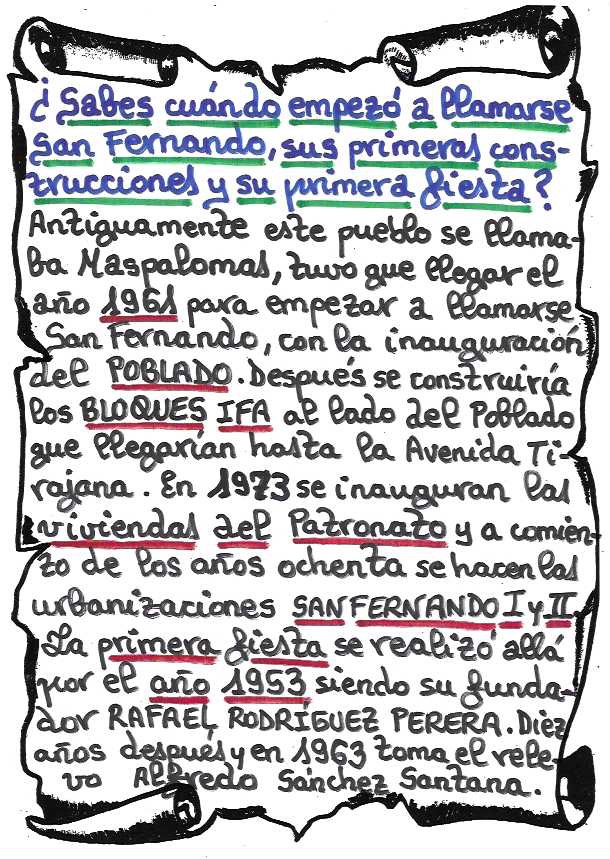 ¿Sabes cuándo empezó a llamarse
San Fernando, sus primeras cons-
trucciones y su primera fiesta?
Antiguamente este pueblo se llama-
ba Maspalomas, tuvo que llegar el
año 1961 para empezar a llamarse
San Fernando, con la inauguración
del POBLADO. Después se construiría
los BLOQUES IFA al lado del Poblado
que llegarían hasta la Avenida Ti-
rajana. En 1973 se inauguran las
viviendas del Patronato y a comien-
zo de los años ochenta se hacen las
urbanizaciones SAN FERNANDO I y II.
La primera fiesta se realizó allá
por el año 1953 siendo su funda-
dor RAFAEL RODRÍGUEZ PERERA. Diez
años después y en 1963 toma el rele-
vo Alfredo Sánchez Santana.